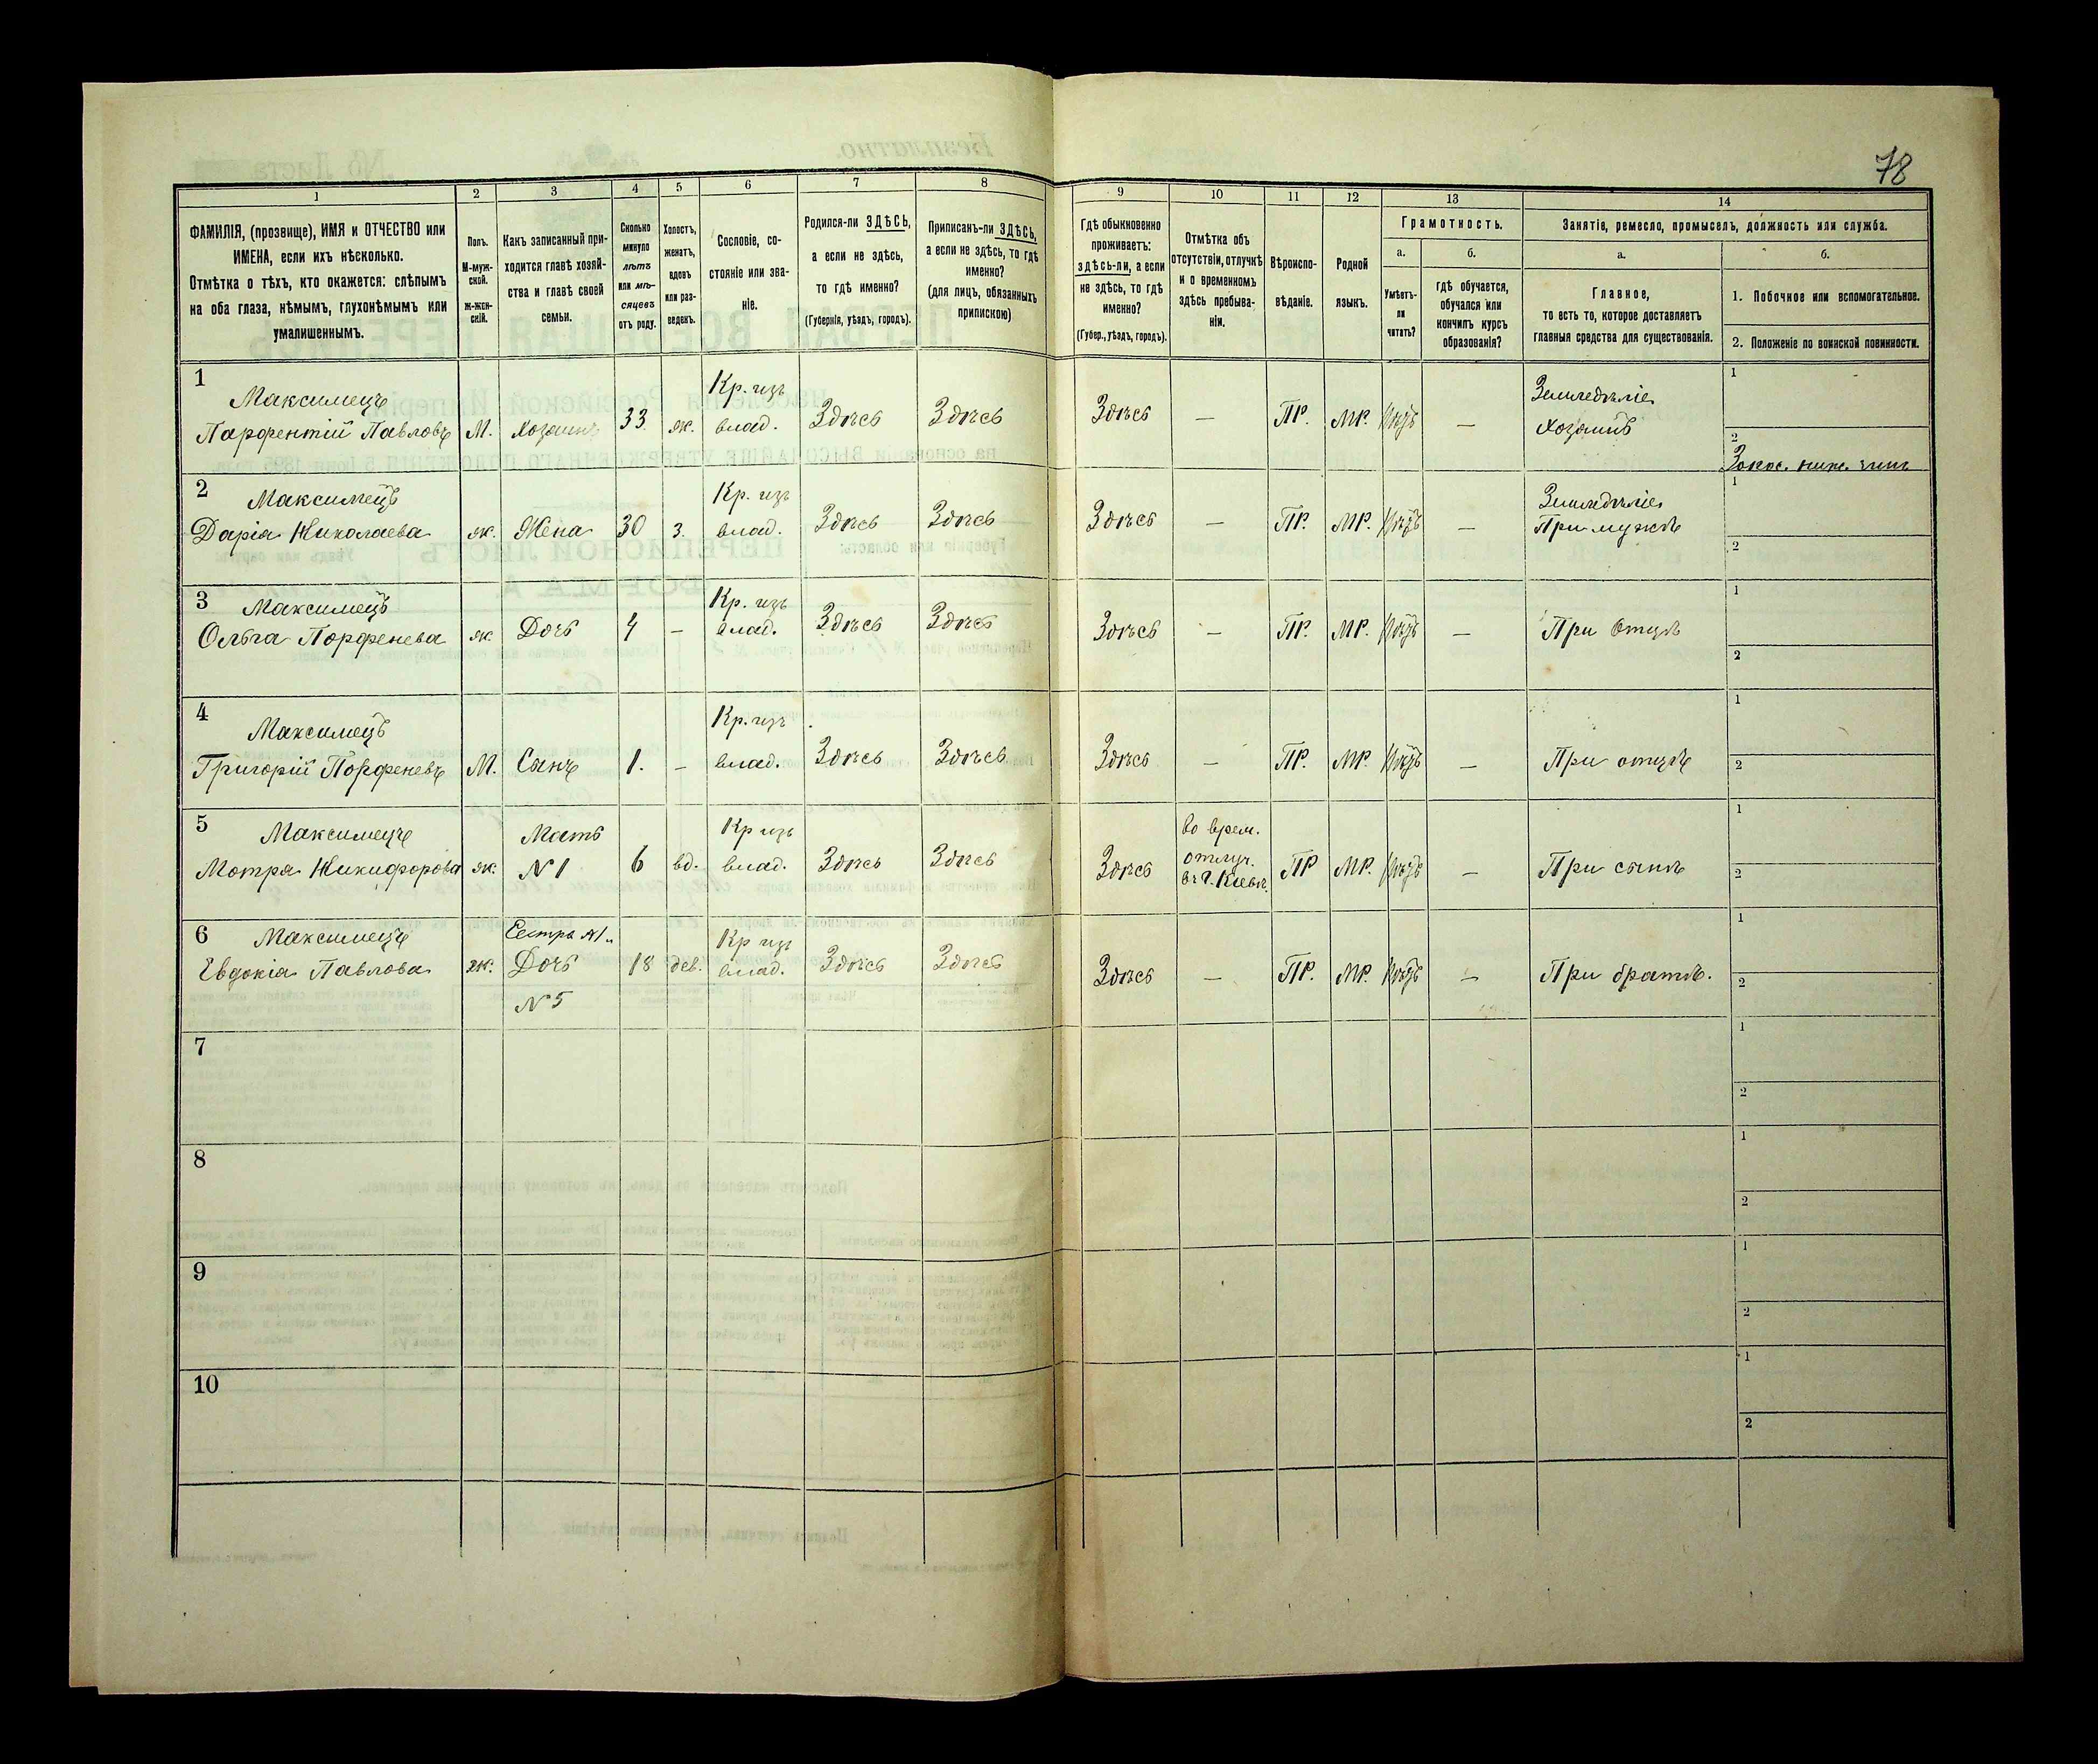 78
1
2
3
4
5
6
7
8
9
10
11
12
13
14
ФАМИЛІЯ, (прозвище), ИМЯ и ОТЧЕСТВО или
ИМЕНА, если ихъ нѣсколько.
Отмѣтка о тѣхъ, кто окажется: слѣпымъ
на оба глаза, нѣмымъ, глухонѣмымъ или
умалишеннымъ.
Полъ.
М-муж-
ской.
ж-жен-
скій.
Какъ записанный при-
ходится главѣ хозяй-
ства и главѣ своей
семьи.
Сколько
минуло
лѣтъ
или мѣ-
сяцевъ
отъ роду.
Холостъ,
женатъ,
вдовъ
или раз-
веденъ.
Сословіе, со-
стояніе или зва-
ніе.
Родился-ли ЗДѢСЬ,
а если не здѣсь,
то гдѣ именно?
(Губернія, уѣздъ, городъ).
Приписанъ-ли ЗДѢСЬ,
а если не здѣсь, то гдѣ
именно?
(для лицъ, обязанныхъ
припискою)
Гдѣ обыкновенно
проживаетъ:
здѣсь-ли, а если
не здѣсь, то гдѣ
именно?
(Губер., уѣздъ, городъ).
Отмѣтка объ
отсутствіи, отлучкѣ
и о временномъ
здѣсь пребыва-
ніи.
Вѣроиспо-
вѣданіе.
Родной
языкъ.
Грамотность.
а.
Умѣетъ-
ли
читать?
б.
гдѣ обучается,
обучался или
кончилъ курсъ
образованія?
Занятіе, ремесло, промыселъ, должность или служба.
а.
Главное,
то есть то, которое доставляетъ
главныя средства для существованія.
б.
1. Побочное или вспомогательное.
2. Положеніе по воинской повинности.
1
Максимецъ
Парфентій Павловъ
М. Хозяинъ 33 ж.
Кр. изъ
влад.
Здѣсь Здѣсь Здѣсь — ПР. МР. —
Земледѣліе
Хозяинъ
1
2
2
Максимецъ
Дарія Николаева
ж. Жена 30 з.
Кр. изъ
влад.
Здѣсь Здѣсь Здѣсь — ПР. МР. —
Земледѣліе
При мужѣ
1
2
3
Максимецъ
Ольга Порфенева
ж. Дочь 4 —
Кр. изъ
влад.
Здѣсь Здѣсь Здѣсь — ПР. МР. —
При Отцѣ
1
2
4
Максимецъ
Григорій Порфеневъ
М. Сынъ 1. —
Кр. изъ
влад.
Здѣсь Здѣсь Здѣсь — ПР. МР. —
При отцѣ
1
2
5
Максимецъ
Мотря Никифорова
ж.
Мать
N 1
6 вд.
Кр изъ
влад.
Здѣсь Здѣсь Здѣсь
Во врем.
отлуч.
въ г. Кіевѣ.
ПР МР. —
При сынѣ
1
2
6
Максимецъ
Евдокія Павлова
ж.
Сестра N1
Дочь
N 5
18 дев.
Кр изъ
влад.
Здѣсь Здѣсь Здѣсь — ПР. МР. —
При братѣ.
1
2
7
1
2
8
1
2
9
1
2
10
1
2